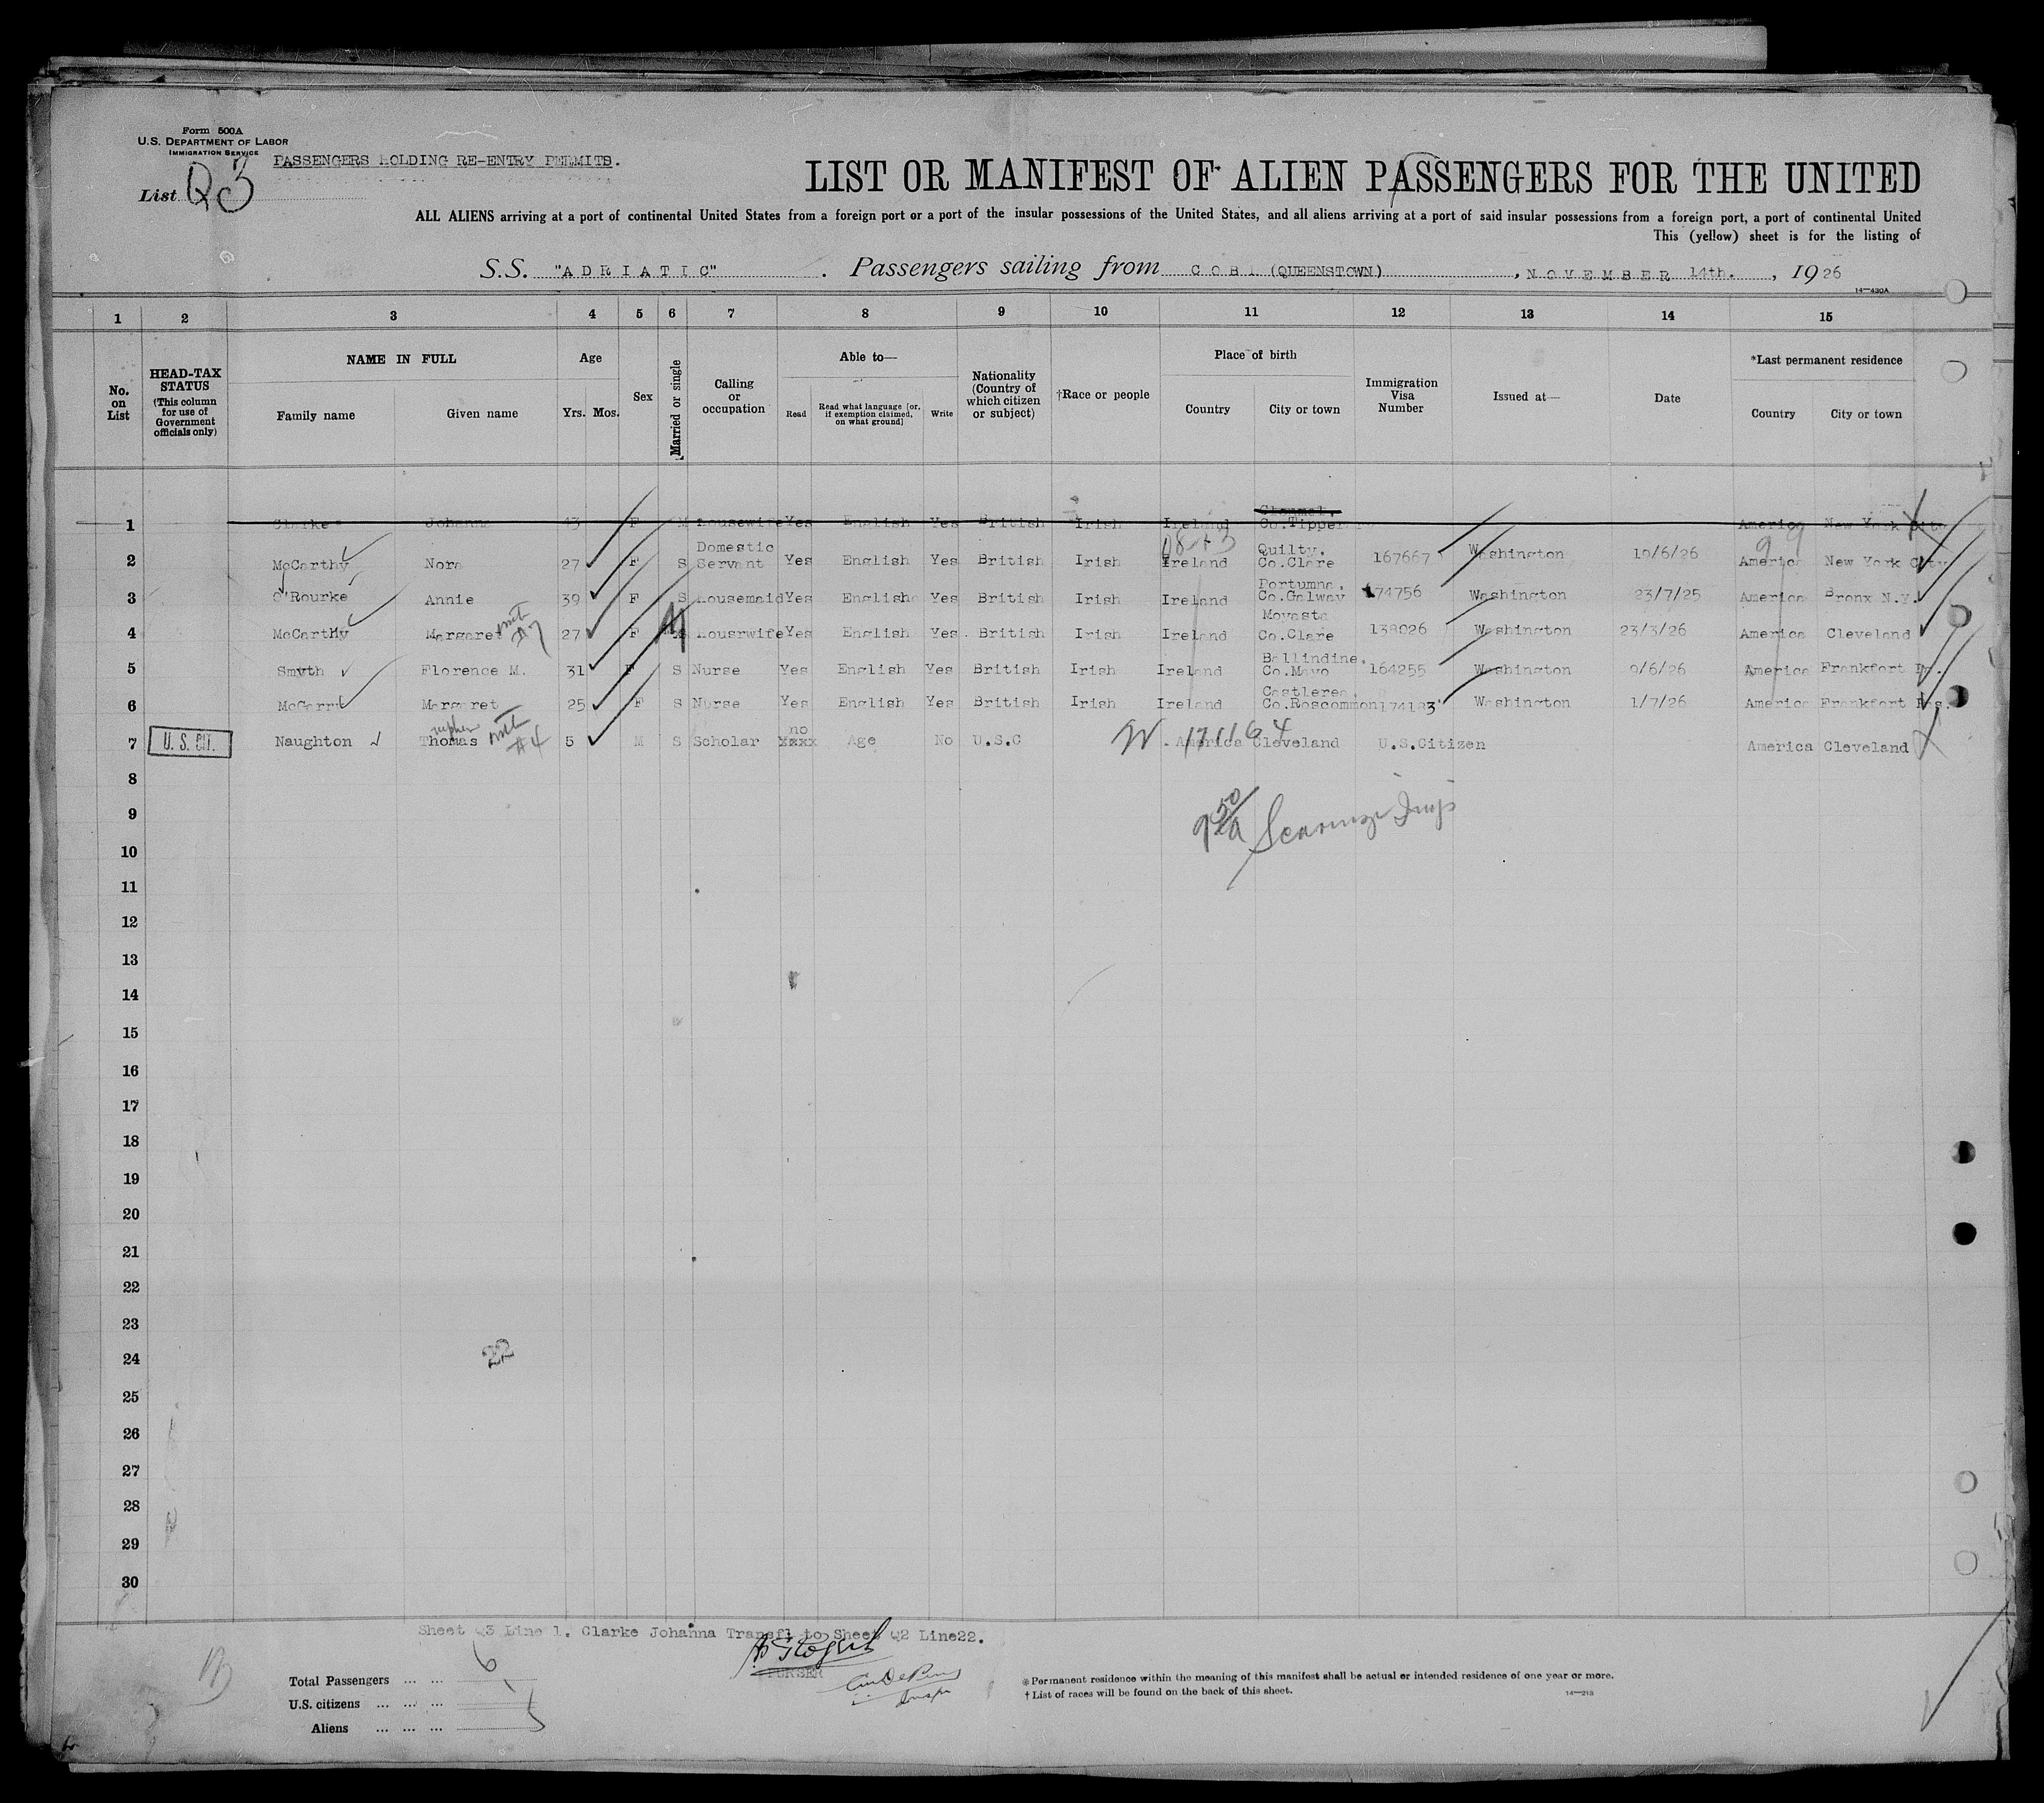 Form 500A
U.S. DEPARTMENT OF LABOR
IMMIGRATION SERVICE
PASSENGERS HOLDING RE-ENTRY PERMITS.
List Q3
LIST OR MANIFEST OF ALIEN PASSENGERS FOR THE UNITED
ALL ALIENS arriving at a port of continental United States from a foreign port or a port of the insular possessions of the United States, and all aliens arriving at a port of said insular possessions from a foreign port, a port of continental United
This (yellow) sheet is for the listing of
S.S. "ADRIATIC". Passengers sailing from COBH (QUEENSTOWN), NOVEMBER 14th., 1926
14—430A
1 2 3 4 5 6 7 8 9 10 11 12 13 14 15
No. on List
HEAD-TAX STATUS (This column for use of Government officials only)
NAME IN FULL
Family name Given name
Age
Yrs. Mos.
Sex
Married or single
Calling or occupation
Able to—
Read
Read what language [or, if exemption claimed, on what ground]
Write
Nationality (Country of which citizen or subject)
†Race or people
Place of birth
Country City or town
Immigration Visa Number
Issued at—
Date
*Last permanent residence
Country City or town
1 Clarke Johanna 43 F M Housewife Yes English Yes British Irish Ireland Clonmel, Co.Tipperary America New York City
2 McCarthy Nora 27 F S Domestic Servant Yes English Yes British Irish Ireland Quilty. Co.Clare 167667 Washington 10/6/26 America New York City
3 O'Rourke Annie 39 F S Housemaid Yes English Yes British Irish Ireland Portumna, Co.Galway 174756 Washington 23/7/25 America Bronx N.Y.
4 McCarthy Margaret #7 27 F M Housewife Yes English Yes. British Irish Ireland Moyasta Co.Clare 138026 Washington 23/3/26 America Cleveland
5 Smyth Florence M. 31 F S Nurse Yes English Yes British Irish Ireland Ballindine, Co.Mayo 164255 Washington 9/6/26 America Frankfort
6 McGarry Margaret 25 F S Nurse Yes English Yes British Irish Ireland Castlerea, Co.Roscommon 174183 Washington 1/7/26 America Frankfort
7 U.S. CIT. Naughton Thomas nephew #4 5 M S Scholar no xxxx Age No U.S.C America Cleveland U.S.Citizen America Cleveland
8
9
10
11
12
13
14
15
16
17
18
19
20
21
22
23
24
25
26
27
28
29
30
22
Sheet Q3 Line 1. Clarke Johanna Transf1 to Sheet Q2 Line22.
PURSER
Total Passengers ... ... 6
U.S. citizens ... ... ... 1
Aliens ... ... ... 5
*Permanent residence within the meaning of this manifest shall be actual or intended residence of one year or more.
†List of races will be found on the back of this sheet.
14—213